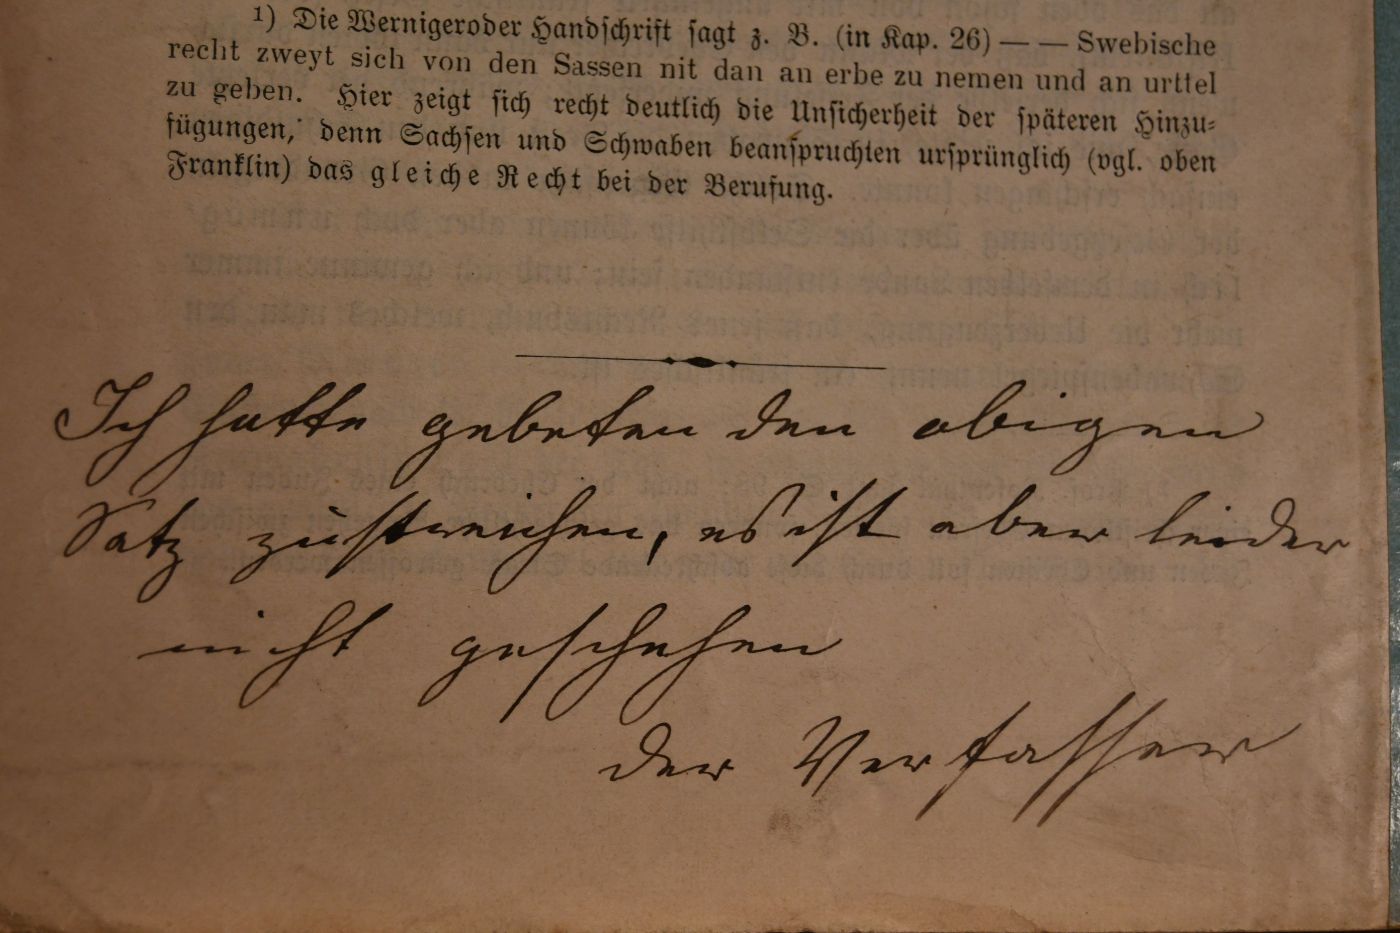 ¹) Die Wernigeroder Handschrift sagt z. B. (in Kap. 26) — — Swebische
recht zweyt sich von den Sassen nit dan an erbe zu nemen und an urttel
zu geben. Hier zeigt sich recht deutlich die Unsicherheit der späteren Hinzu-
fügungen, denn Sachsen und Schwaben beanspruchten ursprünglich (vgl. oben
Franklin) das gleiche Recht bei der Berufung.
Ich hatte gebeten den obigen
Satz zu streichen, es ist aber leider
nicht geschehen
der Verfasser